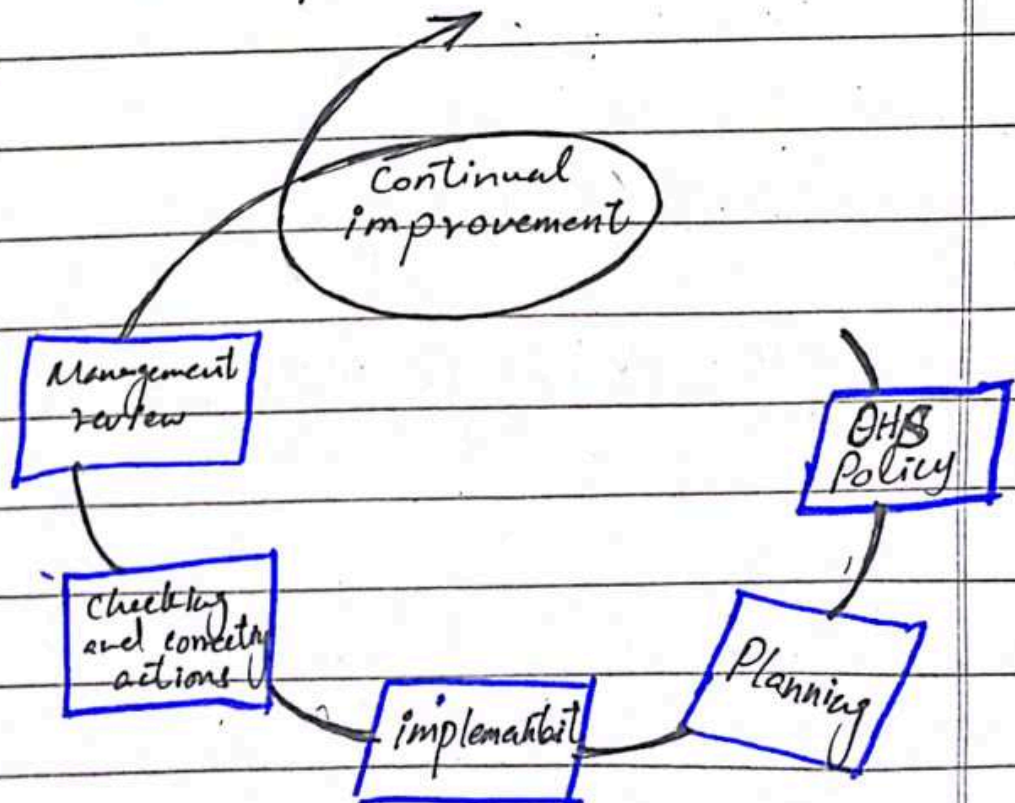 Continual
improvement
Management
review
OHS
Policy
checking
and correcting
actions
Planning